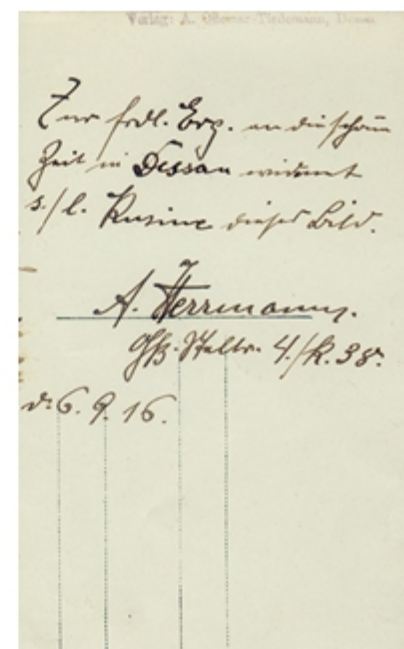 Verlag: A. Ollomar-Tiedemann, Dessau
Zur frdl. Erg. an die schöne
Zeit in Dessau widmet
s./l. Kusine dieses Bild.
A. Herrmann.
4./R. 38.
d. 6. 9. 16.